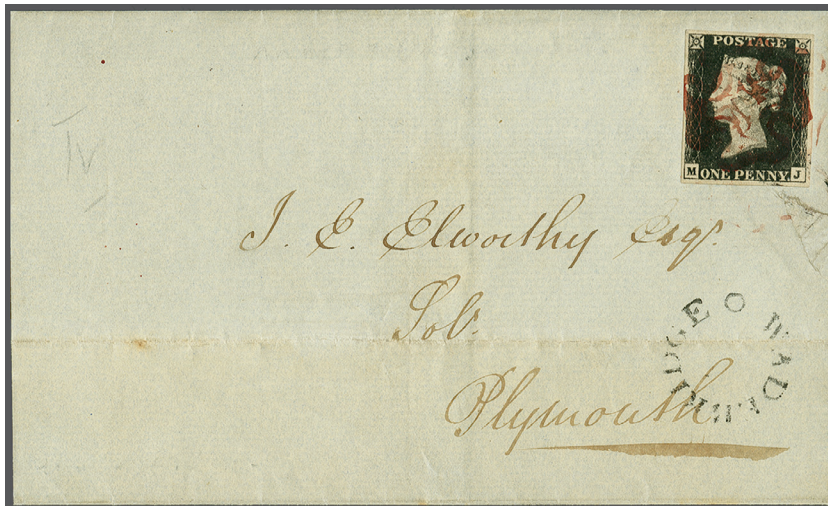 POSTAGE
M ONE PENNY J
J. E. Elworthy Esqr.
Solr.
Plymouth
WADEBRIDGE